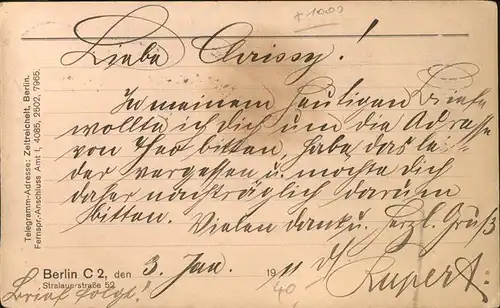 + 1000
Liebe Chrissy!
In meinem heutigen Briefe
wollte ich dich um die Adresse
von Theo bitten, habe das lei-
der vergessen u. möchte dich
daher nachträglich darum
bitten. Vielen Dank u. herzl. Gruß
Berlin C 2, den 3. Jan. 1911 Rupert.
Stralauerstraße 52
Brief folgt!
40
Telegramm-Adresse: Zeitreichelt, Berlin.
Fernspr.-Anschluss Amt I, 4085, 2502, 7965.